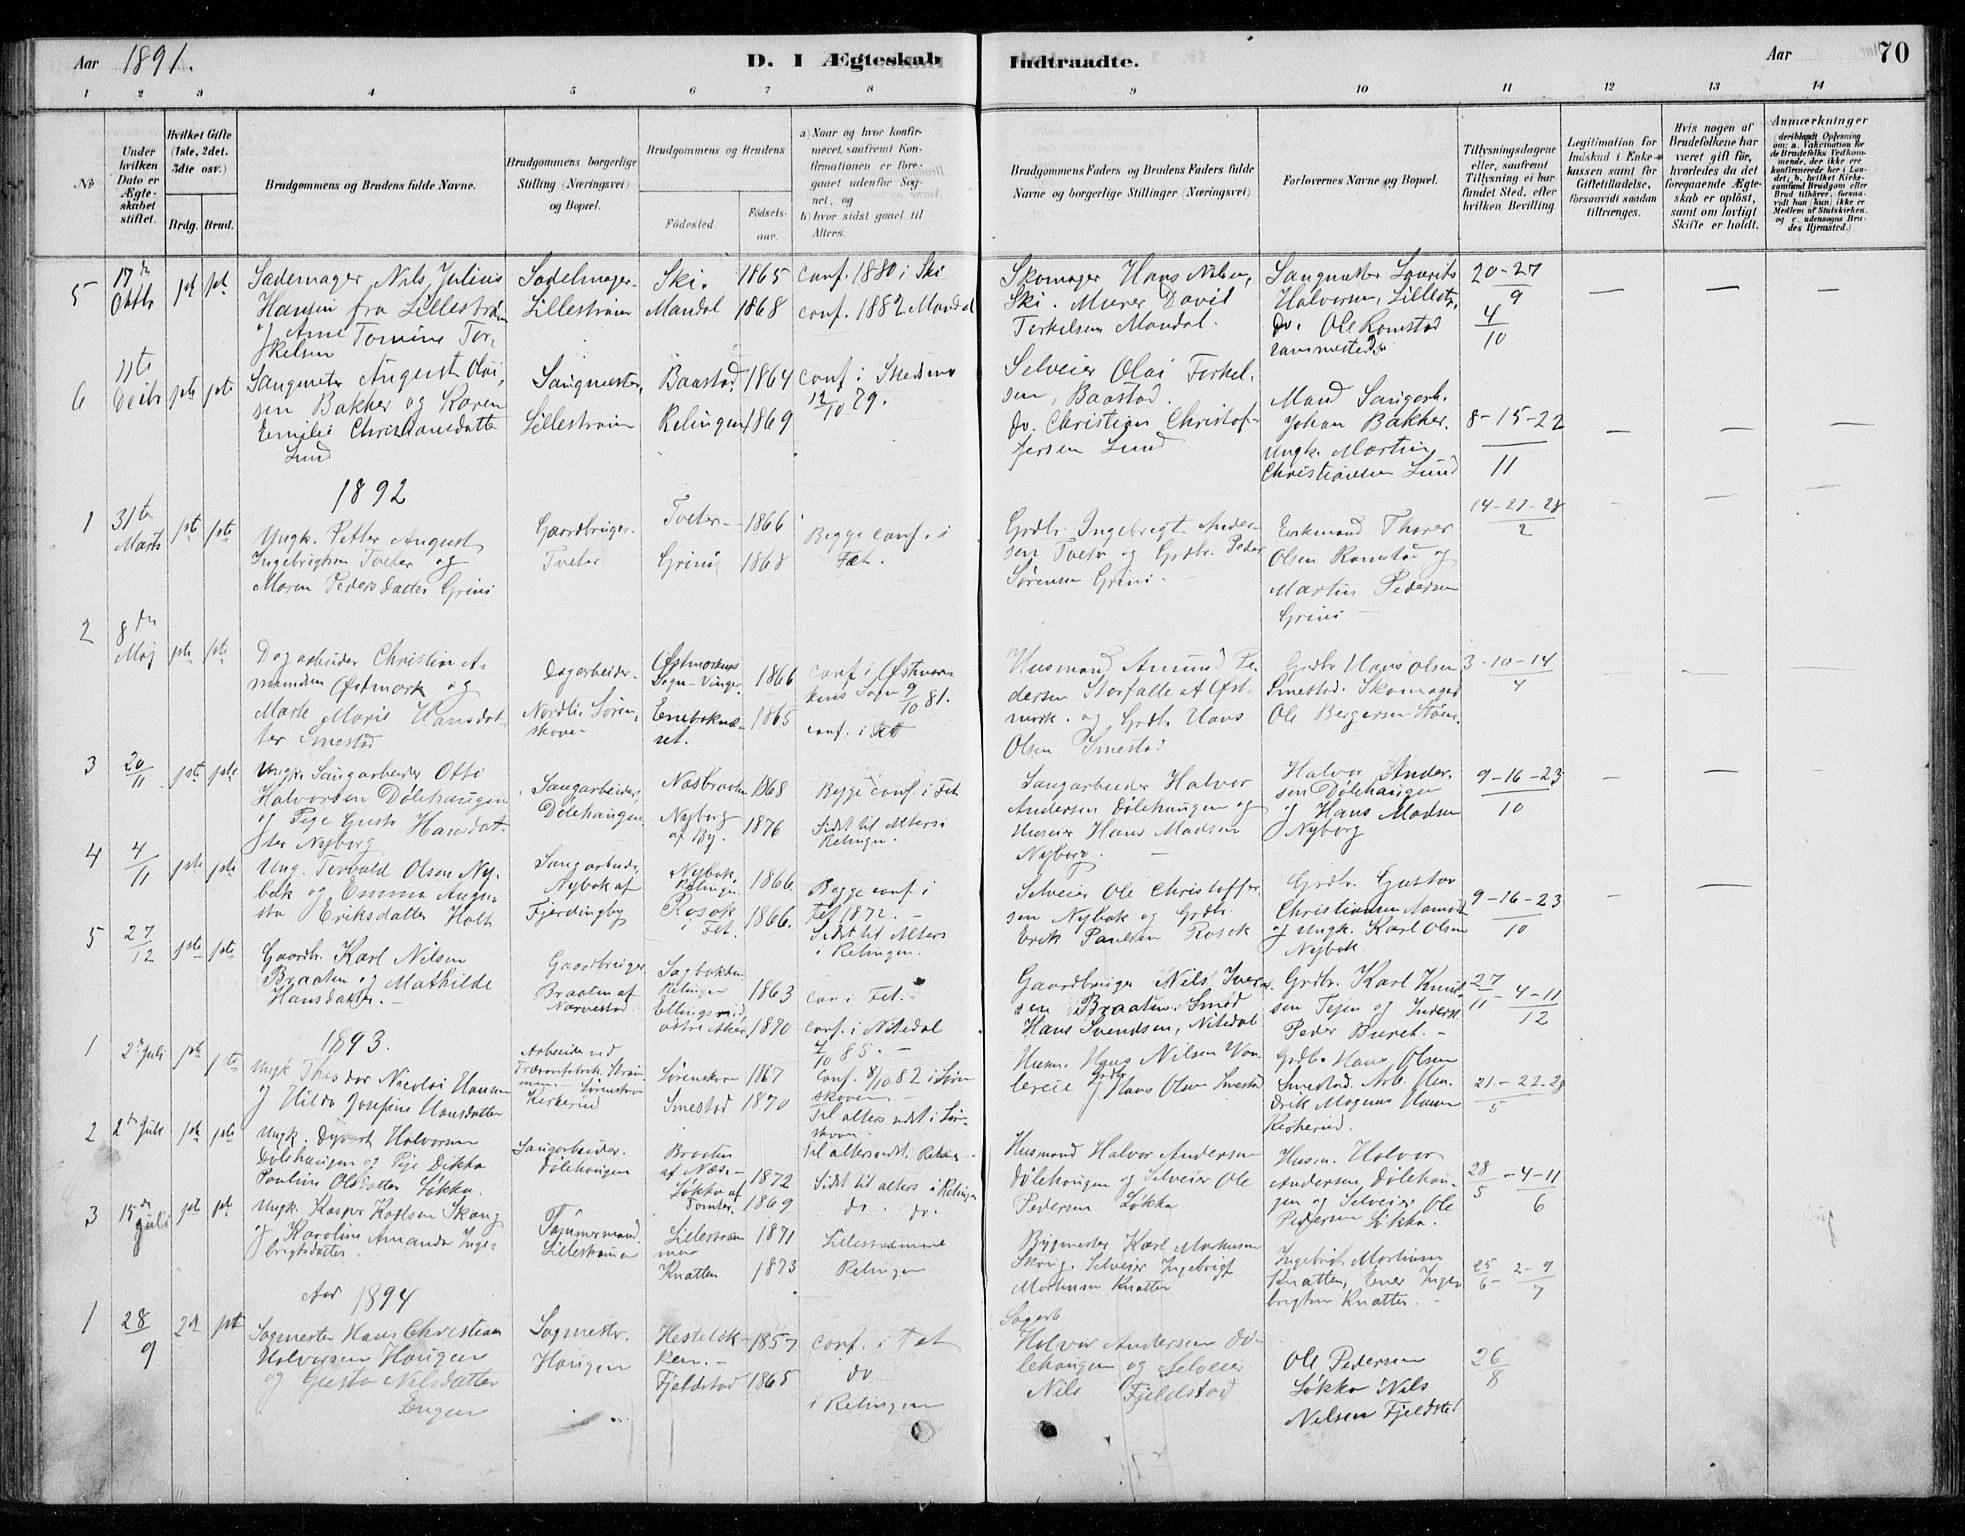 Aar 1891.
D. I Ægteskab
Indtraadte.
Aar
70
1 2 3 4 5 6 7 8 9 10 11 12 13 14
No
Under hvilken Dato er Ægteskabet stiftet.
Hvilket Gifte (1ste, 2det, 3die osv.)
Brdg. Brud.
Brudgommens og Brudens fulde Navne.
Brudgommens borgerlige Stilling (Næringsvei) og Bopæl.
Brudgommens og Brudens
Fødested.
Fødselsaar.
a) Naar og hvor konfirmeret, saafremt Konfirmationen er foregaaet udenfor Sognet, og
b) hvor sidst gaaet til Alters.
Brudgommens Faders og Brudens Faders fulde Navne og borgerlige Stillinger (Næringsvei)
Forlovernes Navne og Bopæl.
Tillysningsdagene eller, saafremt Tillysning ei har fundet Sted, efter hvilken Bevilling
Legitimation for Indskud i Enkekassen samt for Giftetilladelse, forsaavidt saadan tiltrænges.
Hvis nogen af Brudefolkene har været gift før, hvorledes da det foregaaende Ægteskab er opløst, samt om lovligt Skifte er holdt.
Anmærkninger
(deriblandt Oplysning om: a. Vakcination for de Brudefolks Vedkommende, der ikke ere konfirmerede her i Landet; b. hvilket Kirkesamfund Brudgom eller Brud tilhører, forsaavidt han (hun) ikke er Medlem af Statskirken, og c. udensogns Brudes Hjemsted.)
5
17 de Oktbr
pt pt
Sademager Nils Julius
Hansen fra Lillestrøm
og Ane Tomine Tor-
kelsen
Sadelmager
Lillestrøm
Ski. 1865
Mandal 1868
conf. 1880 i Ski
conf. 1882. Mandal
Skomager Hans Nilsen,
Ski. Murer David
Terkelsen Mandal.
Sangmester Lourits
Halvorsen, Lillestr.
do. Ole Romstad
sammested
20-27
9
4
10
6
11te
pte pte
Sangmester August Olai-
sen Bakker og Karen
Emilie Christiansdatter
Lund
Sangmester,
Lillestrøm
Baastad 1864
Relingen 1869
conf. i Skedsmo
12/10 79.
Selveier Olai Terkel-
sen, Baastad.
do. Christian Christof-
fersen Lund
Johan Bakker.
Ungk. Martin
Christiansen Lund
8-15-22
11
1892
1
31te Marts
pte pte
Ungk. Petter August
Ingebrigtsen Tveter og
Maren Pedersdatter Grini
Gaardbruger
Tveter
Tveter 1866
Grini 1868
Begge conf. i
Fet.
Grdbr. Ingebrigt Ander-
sen Tveter og Grdbr. Peder
Sørensen Grini.
Enkemand Thorer
Olsen Romstad og
Martin Pedersen
Grini
14-21-28
2
2
8 de Maj
pte pte
Dagarbeider Christian A-
mundsen Østmork og
Marte Marie Hansdat-
ter Smestad
Dagarbeider.
Nordli, Søren-
skoven
Østmorkens
Sogn-Vinger. 1866
Enebaknæ-
set. 1865
conf. i Østmar-
kens Sogn 9/10 81.
conf. i Fet
Husmand Amund Pe-
dersen Storfalle af Øst-
mork. og Grdbr. Hans
Olsen Smestad
Grdbr. Hans Olsen
Smestad. Skomager
Ole Bergersen
3-10-14
4
3
20/11
pste pste
Ungk. Sangarbeider Otto
Halvorsen Dølehaugen
og Pige Gusta Hansdat-
ter Nyborg
Sangarbeider,
Dølehaugen
Næsbraaten 1868
Nyborg
af By. 1876
Begge conf. i Fet.
Sidst til Alters i
Relingen.
Sangarbeider Halvor
Andersen Dølehaugen og
Huseier Hans Madsen
Nyborg.
Halvor Ander-
sen Dølehaugen
og Hans Madsen
Nyborg
9-16-23
10
4
4/11
pste pste
Ung. Torvald Olsen Ny-
bæk og Emma Augu-
sta Eriksdatter Holt
Sangarbeid.
Nybæk af
Fjerdingby
Nybæk,
Relingen 1866.
Rosok
i Fet. 1866.
Begge conf. i
Fet 1872.
Sidst til Alters
i Relingen.
Selveier Ole Christoffer-
sen Nybæk og Grdbr.
Erik Paulsen Rosok
Grdbr. Gustav
Christiansen
og Ungk. Karl Olsen
Nybæk
9-16-23
10
5
27/12
pste pste
Gaardbr. Karl Nilsen
Braaten og Mathilde
Hansdatter.
Gaardbruger
Braaten af
Nærvestad
Sagbakken
Relingen 1863
Ellingsrud
østre Aker 1870
con. i Fet.
conf. i Nitedal
7/10 85.
Gaardbruger Nils Ivers-
sen Braaten. Smed
Hans Svendsen, Nitedal
Grdbr. Karl Knud-
sen Tejen og
Peder Buret.
27/11 - 4-11
12
1893.
1
2 Juli
pte pte
Ungk Theodor Nicolai Hansen
og Hilda Josefine Hansdatter
Arbeider ved
Sørenskoven
Kirkerud
Sørenskoven 1867
Smestad 1870
Conf. 8/10 82 i Søren-
skoven.
Til alters sidst i Sør-
skoven
Husm. Hans Nilsen
og Grdbr Hans Olsen Smestad
Grdbr. Hans Olsen
Smestad. Arb. Hen-
drik Magnus Hansen
Kirkerud.
21-22-28
5
2
2 Juli
pte pte
Ungk. Halvorsen
Dølehaugen og Pige Dikka
Pauline Olsdatter Løkka.
Sangarbeider.
Dølehaugen
Braaten
af Næs. 1872
Løkka af
Tomter. 1869
Til alters sidst i Relin-
Sidst til alters i Relingen
do. do.
Husmand Halvor Andersen
Dølehaugen og Selveier Ole
Pedersen Løkka
Husm. Halvor
Andersen Dølehau-
gen og Selveier Ole
Pedersen Løkka.
28/5 - 4-11
6
3
15 de Juli
pte pte
Ungk. Kasper Karlsen Skaug
og Karoline Amanda Inge-
brigtsdatter.
Tømmermand.
Lillestrømmen
Lillestrøm
men 1871
Knatten 1873
Lillestrømmen
Relingen
Bygmester Karl Markussen
Skaug. Selveier Ingebrigt
Mortensen Knatten
Ingebrigt Mortensen
Knatten, Iver Inge-
brigtsen Knatten.
25/6 - 2-9
7
Aar 1894
1
28
9
2d pt
Sagmester Hans Christian
Halvorsen Haugen
og Gusta Nilsdatter
Engen
Sagmestr.
Haugen
Hestelæk-
ken. 1857
Fjeldstad 1865
conf. i Fet
do
i Relingen
Sagarb.
Halvor Andersen Dø-
lehaugen og Selveier
Nils Fjeldstad
Ole Pedersen
Løkka Nils
Nilsen Fjeldstad
26
8